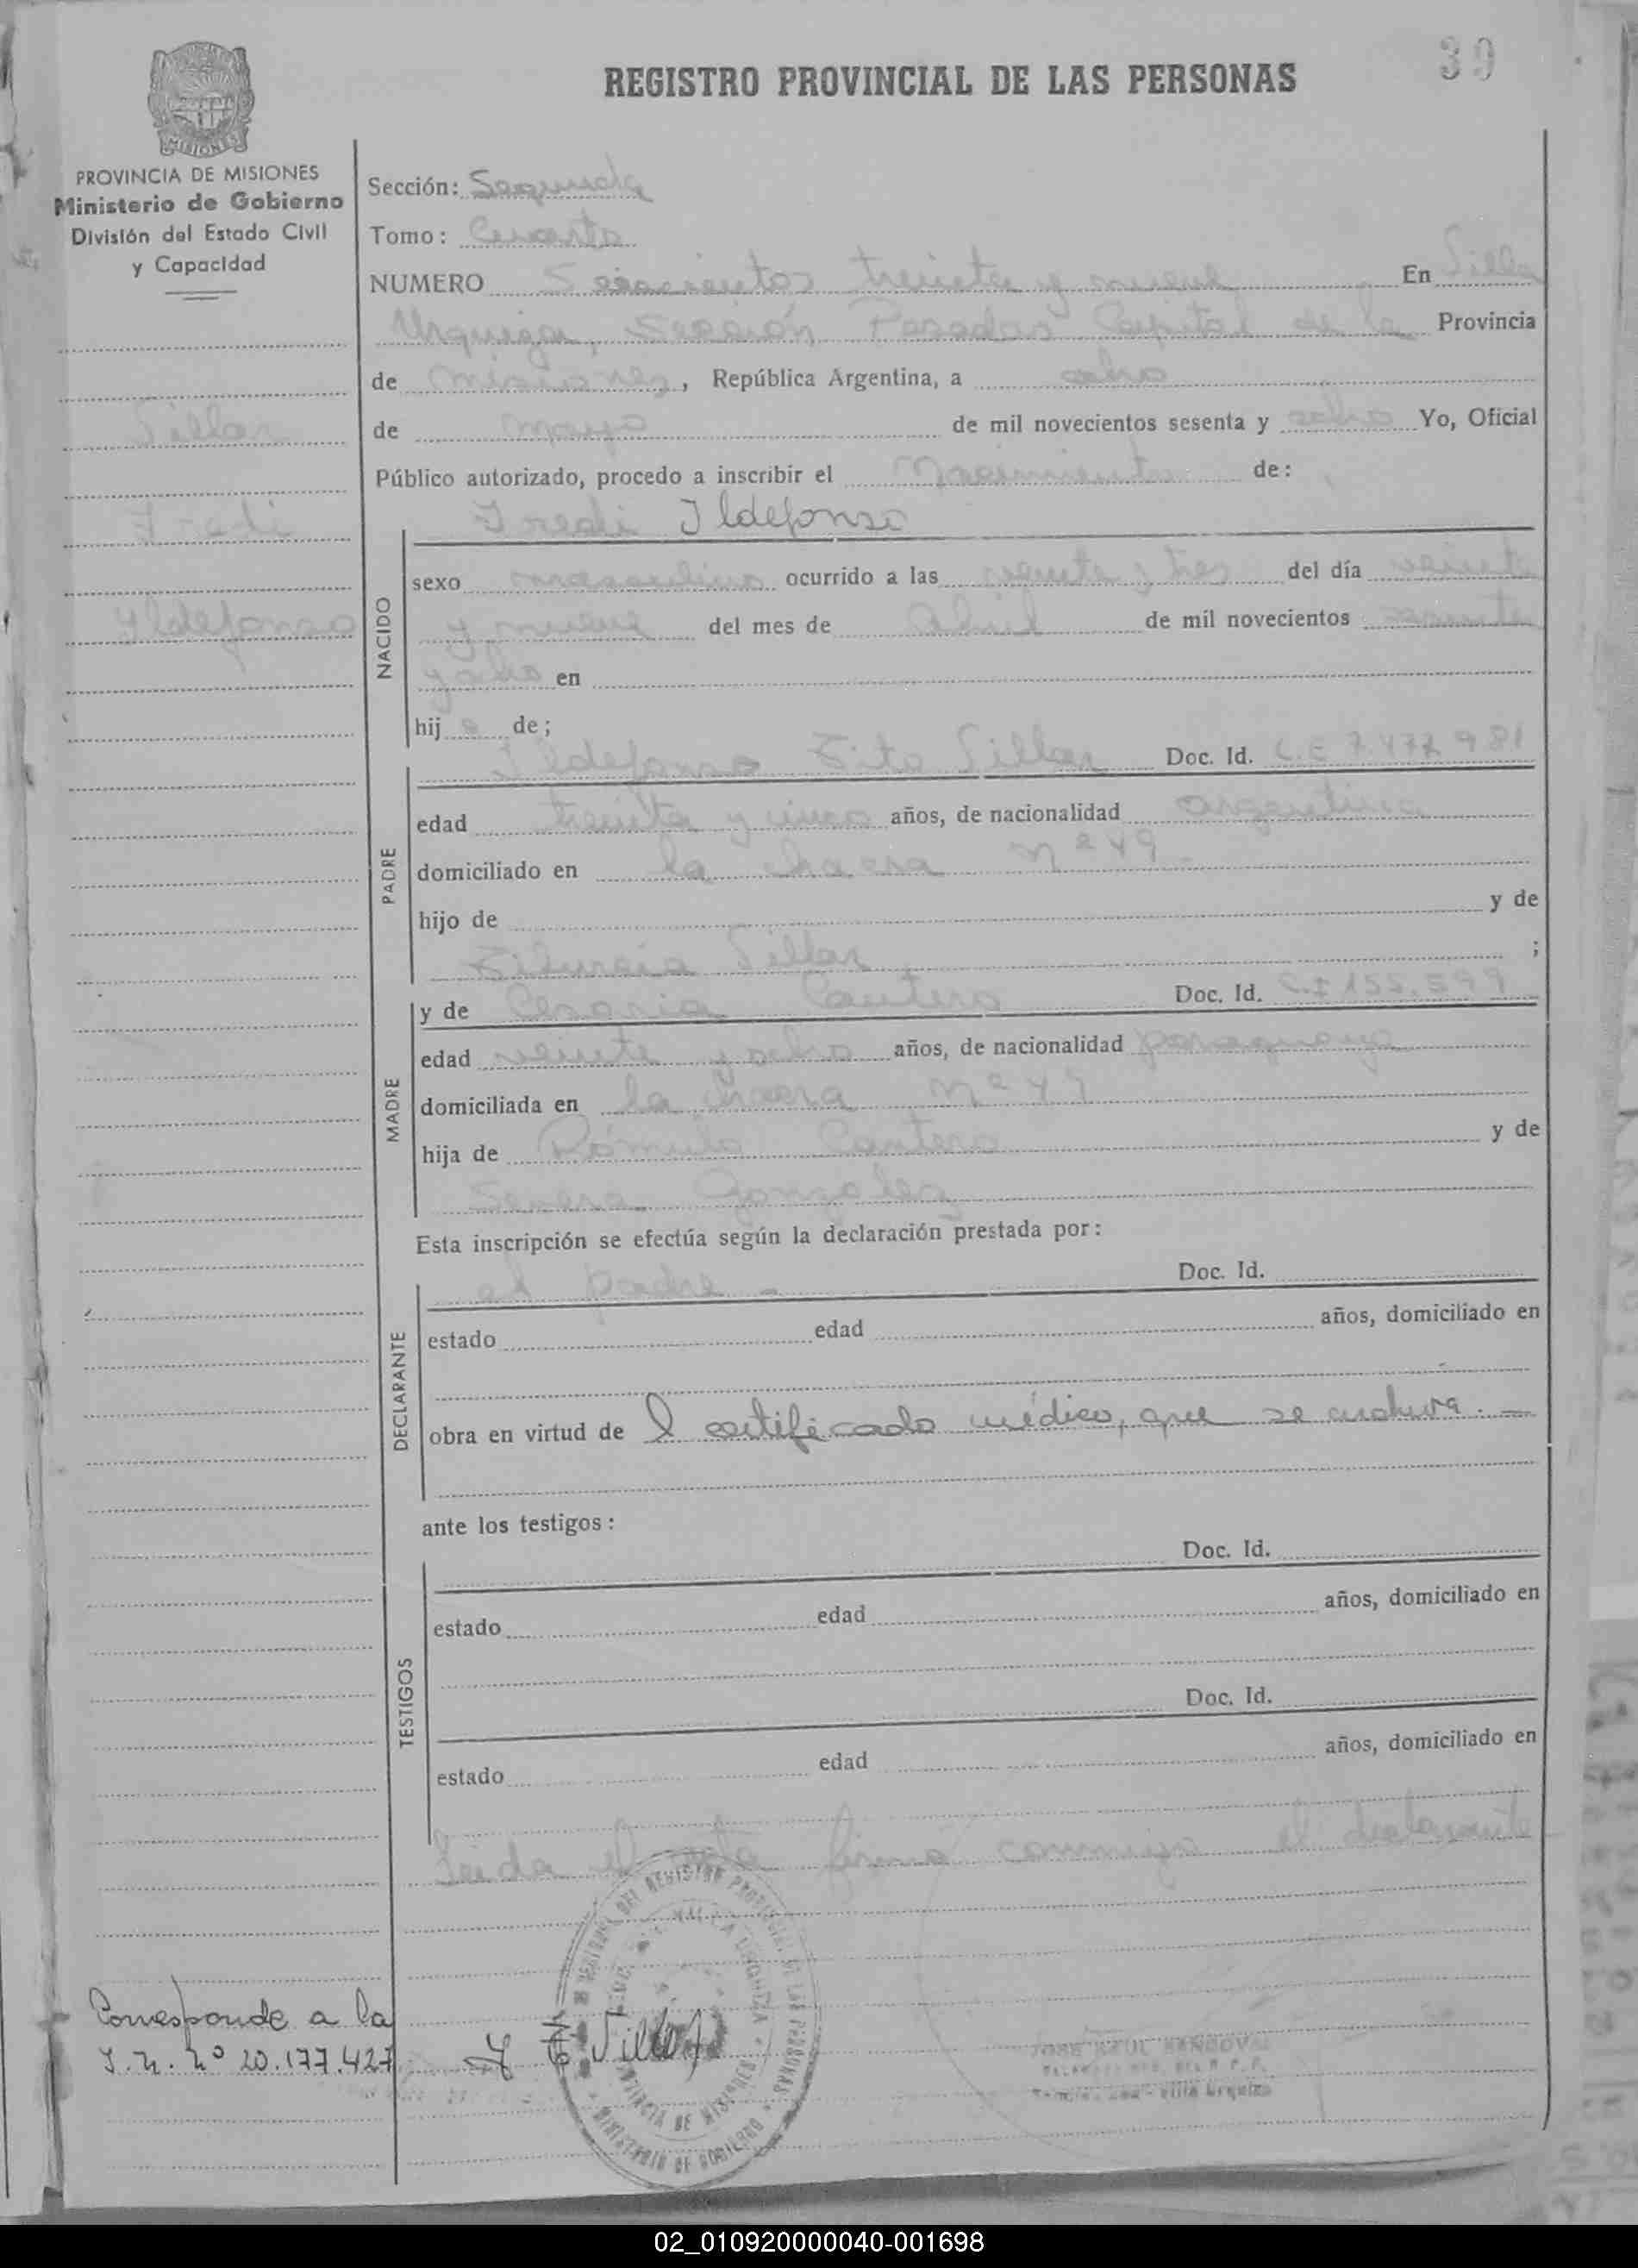 39
REGISTRO PROVINCIAL DE LAS PERSONAS
MISIONES
PROVINCIA DE MISIONES
Ministerio de Gobierno
División del Estado Civil
y Capacidad
Villar
Fredi
Yldefonso
Sección: Segunda
Tomo: Cuarto
NUMERO Seiscientos treinta y nueve En Villa
Urquiza, Sección Posadas Capital de la Provincia
de Misiones, República Argentina, a ocho
de mayo de mil novecientos sesenta y ocho Yo, Oficial
Público autorizado, procedo a inscribir el Nacimiento de:
Fredi Ildefonso
NACIDO
sexo masculino ocurrido a las veinte y tres del día veinte
y nueve del mes de Abril de mil novecientos sesenta
y ocho en
hijo de;
PADRE
Ildefonso Tito Villar Doc. Id. 7.472.981
edad treinta y cinco años, de nacionalidad argentina
domiciliado en la chacra Nº 49
hijo de y de
Tiburcia Villar ;
MADRE
y de Cesaria Cantero Doc. Id. C.I 155.599
edad veinte y ocho años, de nacionalidad paraguaya
domiciliada en la chacra Nº 49
hija de Rómulo Cantero y de
Severa Gonzalez
Esta inscripción se efectúa según la declaración prestada por:
DECLARANTE
el padre - Doc. Id.
estado edad años, domiciliado en
obra en virtud de l certificado médico, que se archiva. -
ante los testigos:
TESTIGOS
Doc. Id.
estado edad años, domiciliado en
Doc. Id.
estado edad años, domiciliado en
Leida el acta firma conmigo el declarante
Corresponde a la
I. N. Nº 20.177.427
Villar
REGISTRO PROVINCIAL DE LAS PERSONAS
VILLA URQUIZA
PROVINCIA DE MISIONES
MINISTERIO DE GOBIERNO
JOSE RAUL SANDOVAL
Villa Urquiza
02_010920000040-001698